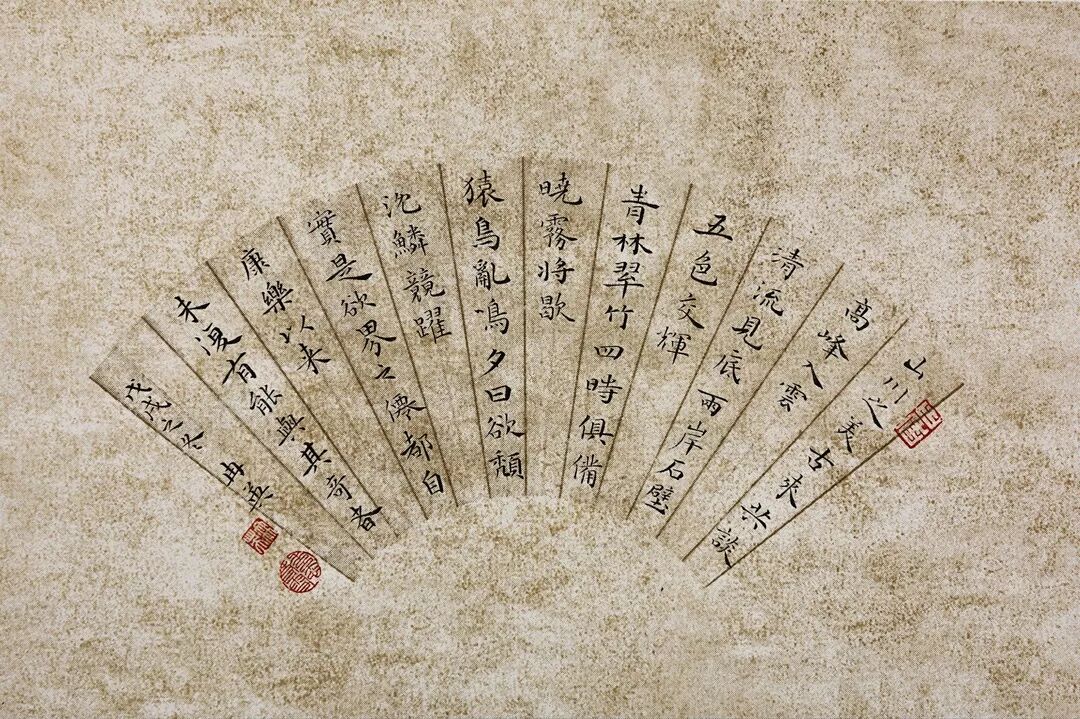 山川之美古来共談
高峰入雲
清流見底兩岸石壁
五色交輝
青林翠竹四時俱備
曉霧將歇
猿鳥亂鳴夕日欲頹
沈鱗競躍
實是欲界之僊都自
康樂以来
未復有能與其奇者
戊戌之冬 冉英